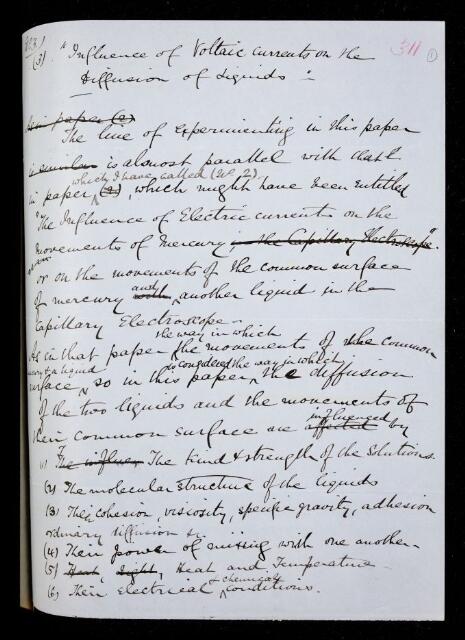 (3). "Influence of Voltaic currents on the
Diffusion of Liquids"
311
1
As in paper (2)
The line of experimenting in this paper
is similar is almost parallel with that
which I have called (No. 2)
in paper (2), which might have been entitled
"The Influence of Electric currents on the
movements of Mercury in the Capillary Electroscope".
or on the movements of the common surface
of mercury and another liquid in the
Capillary Electroscope.
the way in which
As in that paper the movements of the common
is considered the way in which
surface, so in this paper the diffusion
of the two liquids and the movements of
influenced
their common surface are affected by
(1) The influen The kind & strength of the solutions
(2) The molecular structure of the liquids
(3) Their cohesion, viscosity, specific gravity, adhesion
ordinary diffusion &c.
(4) Their power of mixing with one another
(5) Heat, Light, Heat and Temperature
& chemical
(6) Their electrical conditions.